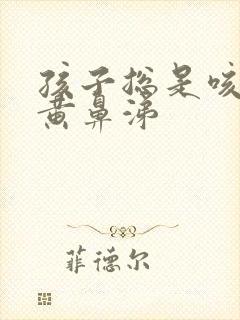 孩子总是咳
黄鼻涕
菲德尔